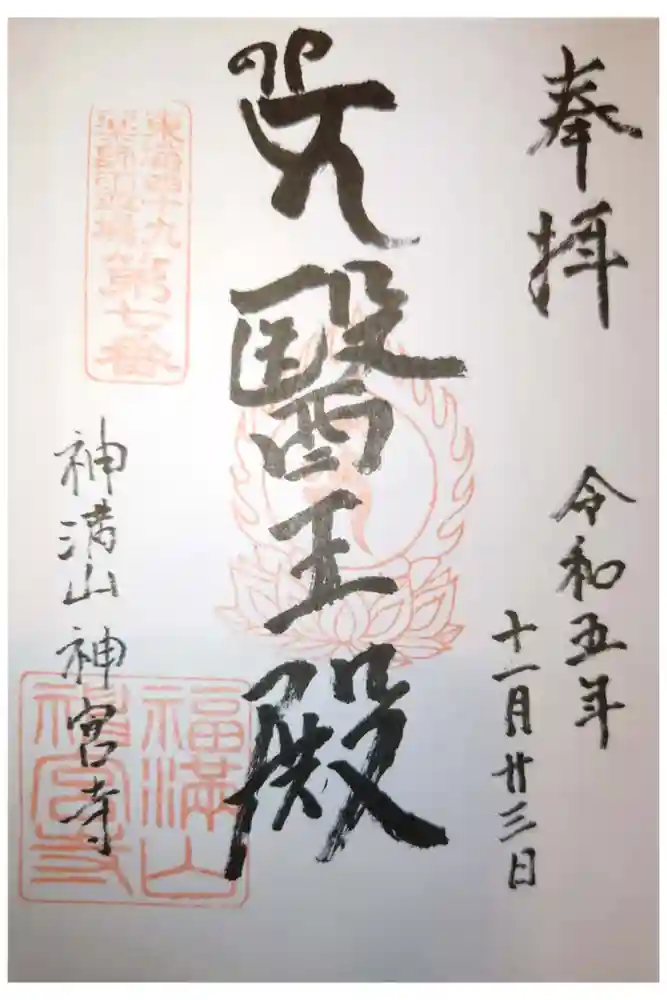 奉拝
令和五年
十一月廿三日
醫王殿
東海四十九
薬師霊場
第七番
神満山神宮寺
福満山
神宮寺